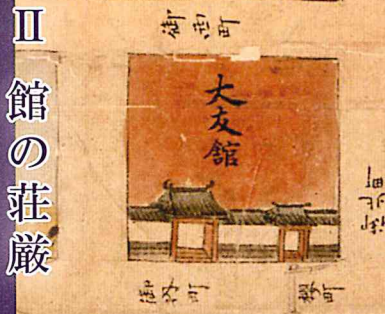 Ⅱ 館の荘厳
御西町
大友館
御北町
御内町
桜町